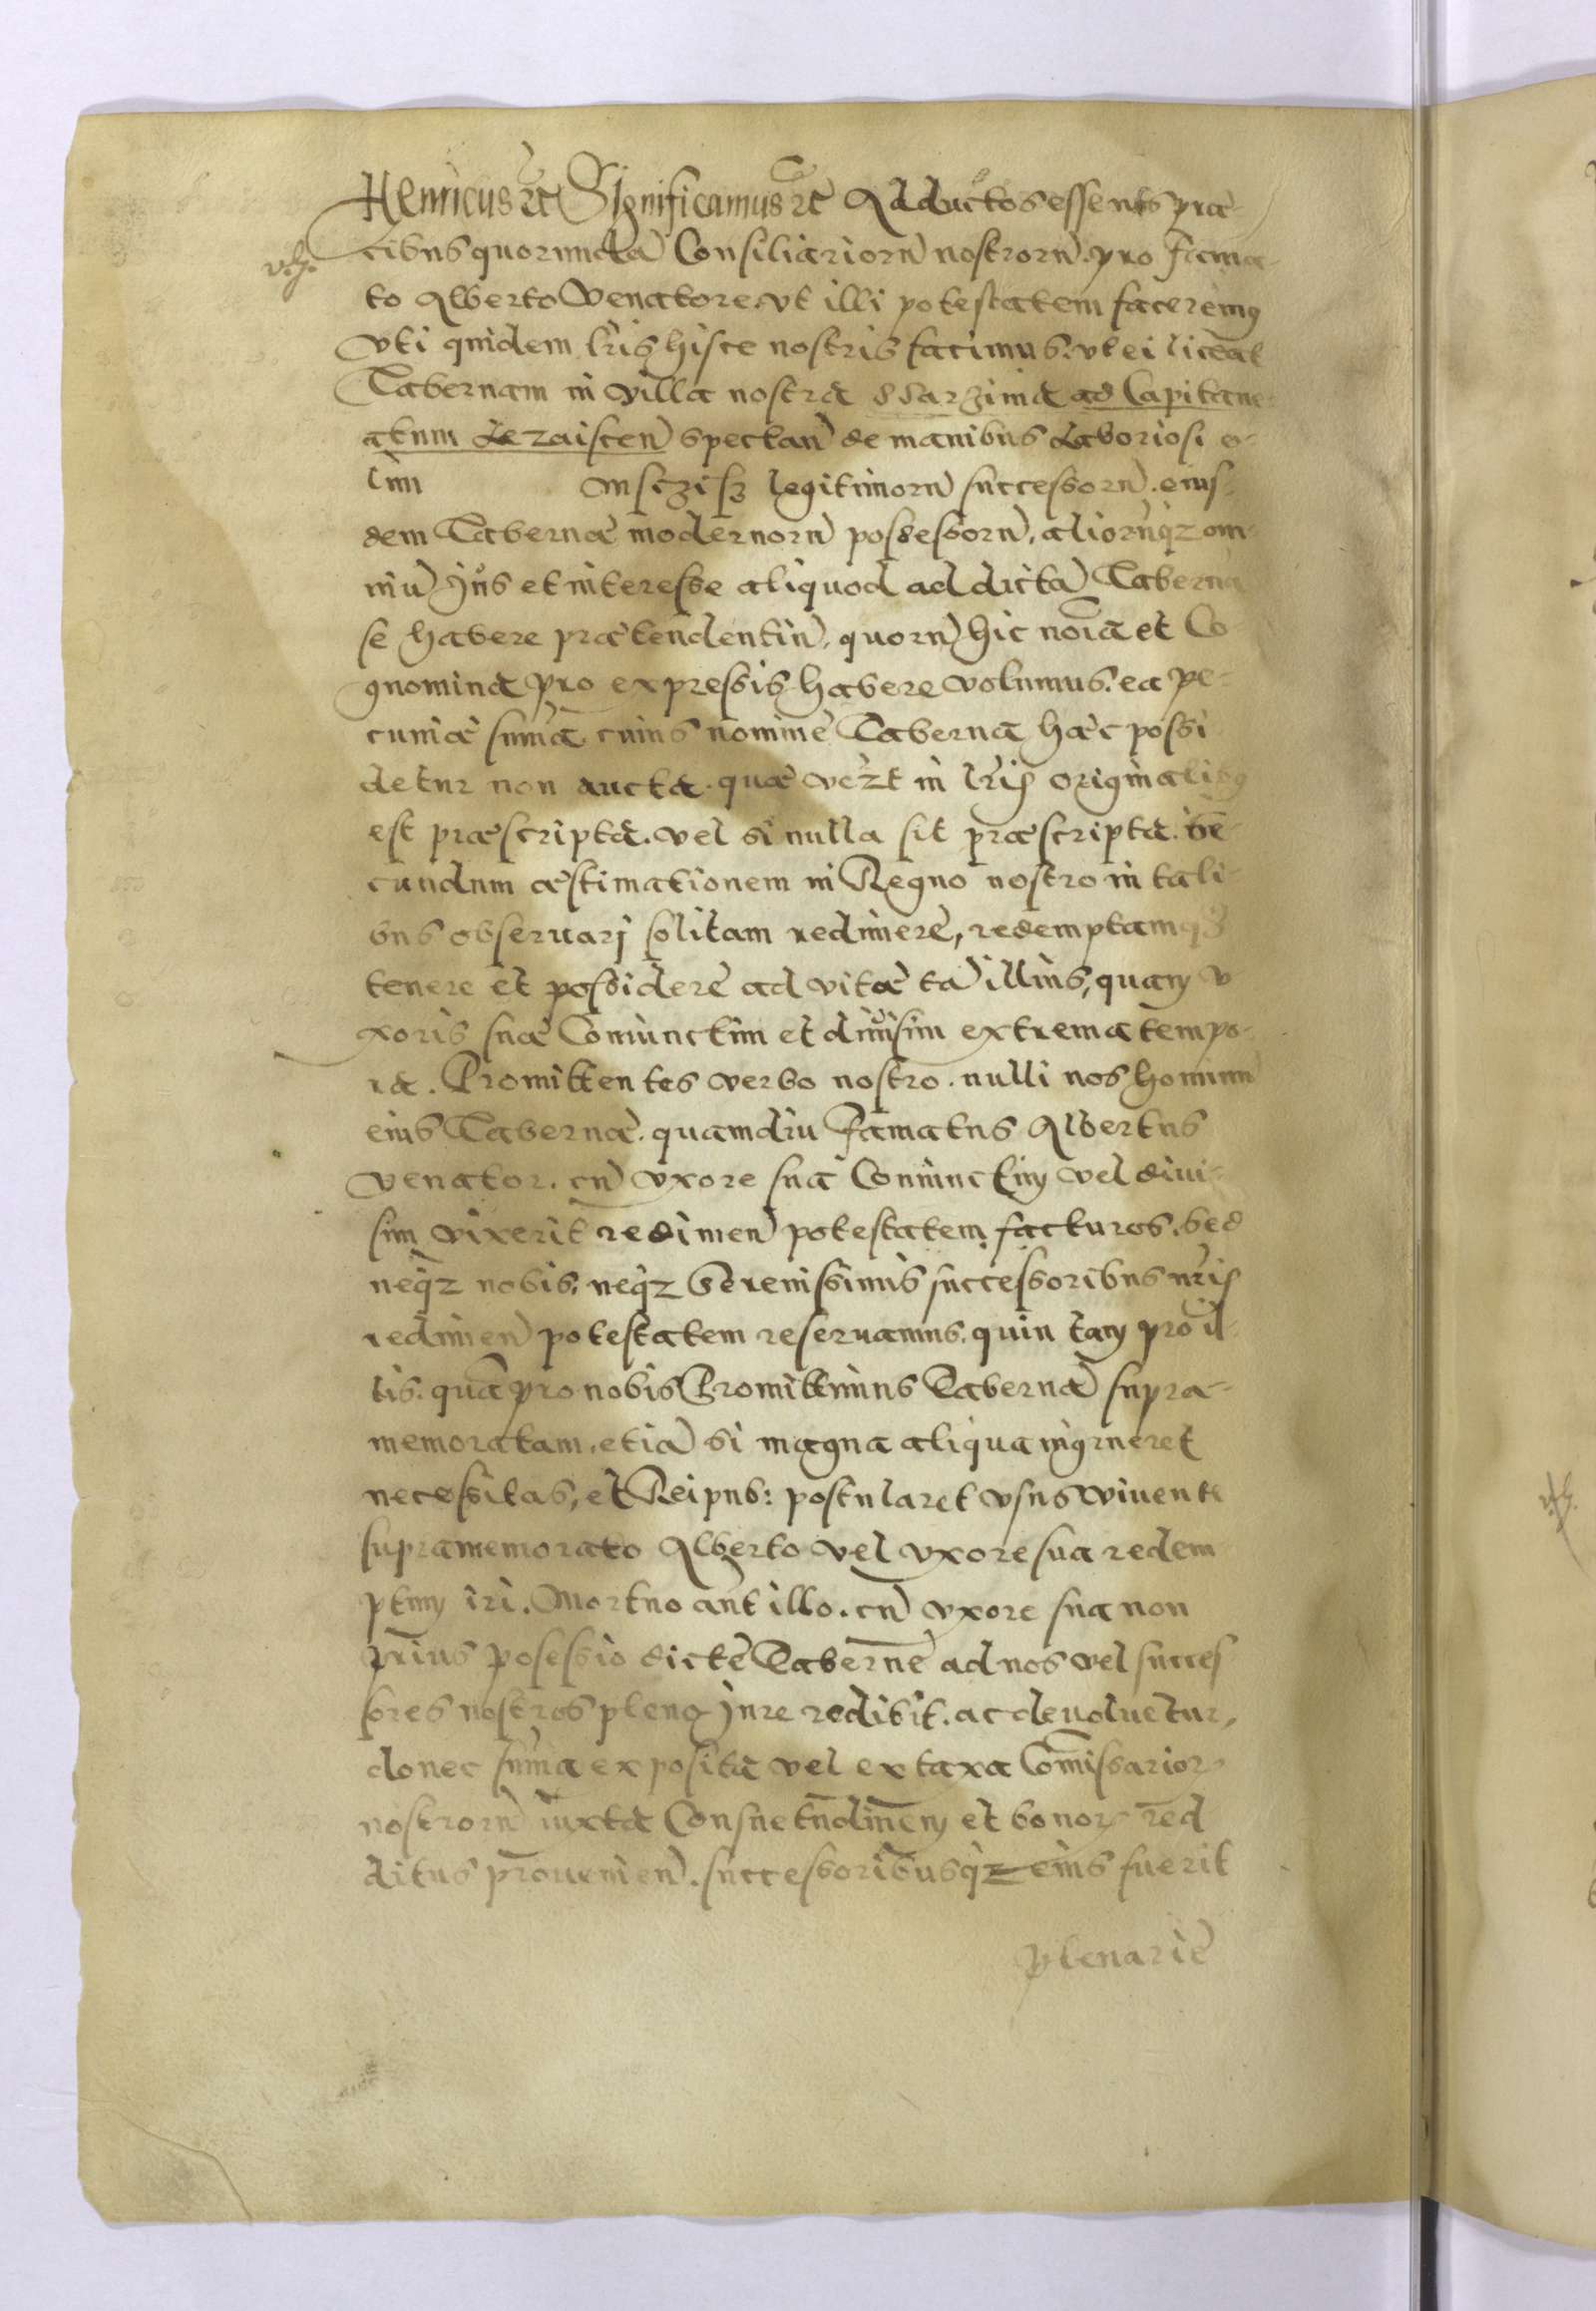 Henricus etc Significamus etc Adductos esse nos præ-
cibus quorundā Consiliariorū nostrorū. pro fama-
to Alberto Venatore. vt illi potestatem faceremus
Vti quidem lr̃is hisce nostris facimus. vt ei liceat
Tabernam in Villa nostra ad Capitane-
atum Lezaiscen̄ spectan̄ de manibus Laboriosi o-
lim legitimorū successorū. eius-
dem Tabernæ modernorū possessorū, aliorūqz om-
niū Jus et interesse aliquod ad dictā Tabernā
se habere prætendentiū, quorū hic noīa et Co-
gnomina pro expressis habere volumus. ea pe-
cuniæ sum̄a cuius nomine Taberna hæc possi
detur non aucta. quæ vel in lr̃is originalibus
est præscripta. vel si nulla sit præscripta. se-
cundum æstimationem in Regno nostro in tali-
bus obseruarj solitam redimere, redemptamqz
tenere et possidere ad vitæ tā illius, quam v
xoris suæ Coniunctim et diuisim extrema tempo-
ra. Promittentes verbo nostro. nulli nos hominū
eius Tabernæ. quamdiu famatus Albertus
Venator. cū vxore sua Coniunctim vel diui-
sim vixerit redimen̄ potestatem facturos. sed
neqz nobis, neqz Serenissimis successoribus nr̃is
redimen̄ potestatem reseruamus. quin tam pro il-
lis. quā pro nobis Promittimus Tabernā supra-
memoratam, etiā si magna aliqua ingrueret
necessitas, et Reipub: postularet vsus viuente
supramemorato Alberto vel vxore sua redem
ptum iri. Mortuo aut illo. cū vxore sua non
prius posessio dicte Taberne ad nos vel succes
sores nostros pleno Jure redibit. ac deuoluetur,
donec sum̄a exposita vel ex taxa Com̄issarior
nostrorū iuxta Consuetudinem et bonor red
ditus prouenien̄. successoribusqz eius fuerit
plenarie